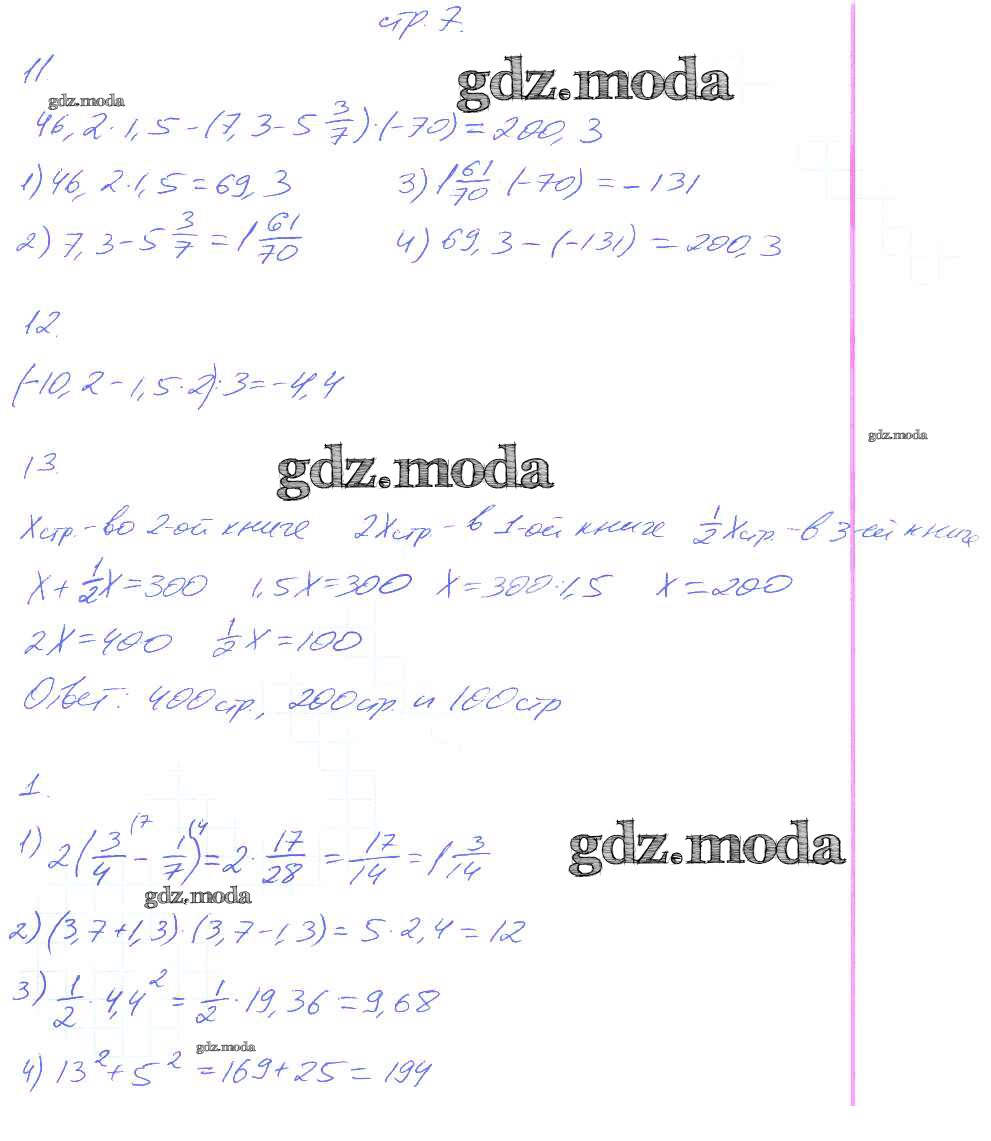 стр. 7.
11.
gdz.moda
gdz.moda
46,2·1,5-(7,3-5 3/7)·(-70)=200,3
1) 46,2·1,5=69,3 3) 1 61/70·(-70)=-131
2) 7,3-5 3/7=1 61/70 4) 69,3-(-131)=200,3
12.
(-10,2-1,5·2):3=-4,4
gdz.moda
13.
gdz.moda
x стр.-во 2-ой книге 2x стр.-в 1-ой книге 1/2 x стр.-в 3-ей книге
x+1/2x=300 1,5x=300 x=300:1,5 x=200
2x=400 1/2x=100
Ответ: 400 стр., 200 стр. и 100 стр
1.
1) 2(3/4 (7 - 1/7 (4)=2·17/28=17/14=1 3/14
gdz.moda
gdz.moda
2) (3,7+1,3)·(3,7-1,3)=5·2,4=12
3) 1/2·4,4²=1/2·19,36=9,68
gdz.moda
4) 13²+5²=169+25=194